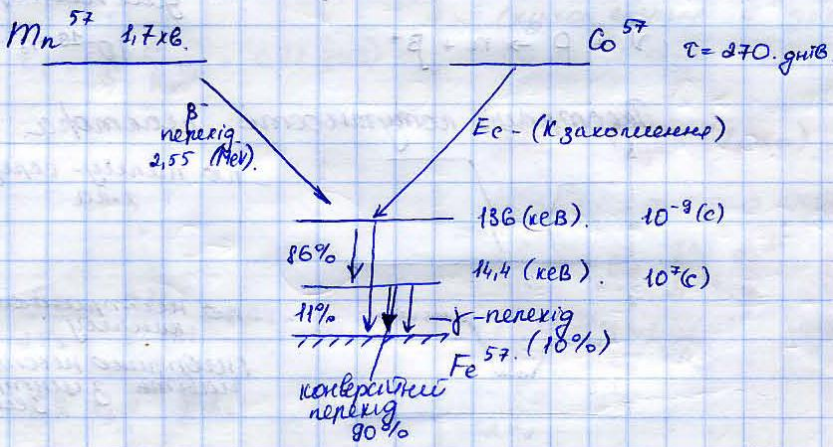 Mn⁵⁷ 1,7 хв.
Co⁵⁷ τ = 270. днів
β⁻
перехід
2,55 (MeV).
Ec – (K захоплення)
136 (кеВ). 10⁻⁹(с)
86%
14,4 (кеВ). 10⁷(с)
11%
γ-перехід
(10%)
Fe⁵⁷.
конверсійний
перехід
90%